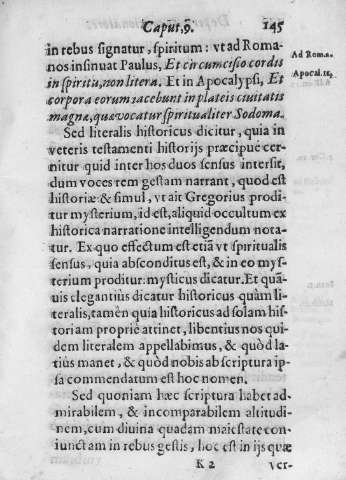 Caput. 9. 145
in rebus signatur, spiritum: vt ad Roma-
nos insinuat Paulus, Et circumcisio cordis
in spiritu, non litera. Et in Apocalypsi, Et
corpora eorum iacebunt in plateis ciuitatis
magnæ, quæ vocatur spiritualiter Sodoma.
Ad Rom. 2.
Apocal. 11.
Sed literalis historicus dicitur, quia in
veteris testamenti historijs præcipuè cer-
nitur quid inter hos duos sensus intersit,
dum voces rem gestam narrant, quod est
historiæ & simul, vt ait Gregorius prodi-
tur mysterium, id est, aliquid occultum ex
historica narratione intelligendum nota-
tur. Ex quo effectum est etiā vt spiritualis
sensus, quia absconditus est, & in eo my-
sterium proditur: mysticus dicatur. Et quā-
uis elegantiùs dicatur historicus quàm li-
teralis, tamen quia historicus ad solam his-
toriam propriè attinet, libentius nos qui-
dem literalem appellabimus, & quòd la-
tiùs manet, & quòd nobis ab scriptura ip-
sa commendatum est hoc nomen.
Sed quoniam hæc scriptura habet ad-
mirabilem, & incomparabilem altitudi-
nem, cum diuina quadam maiestate con-
iunctam in rebus gestis, hoc est in ijs quæ
K 2 ver-